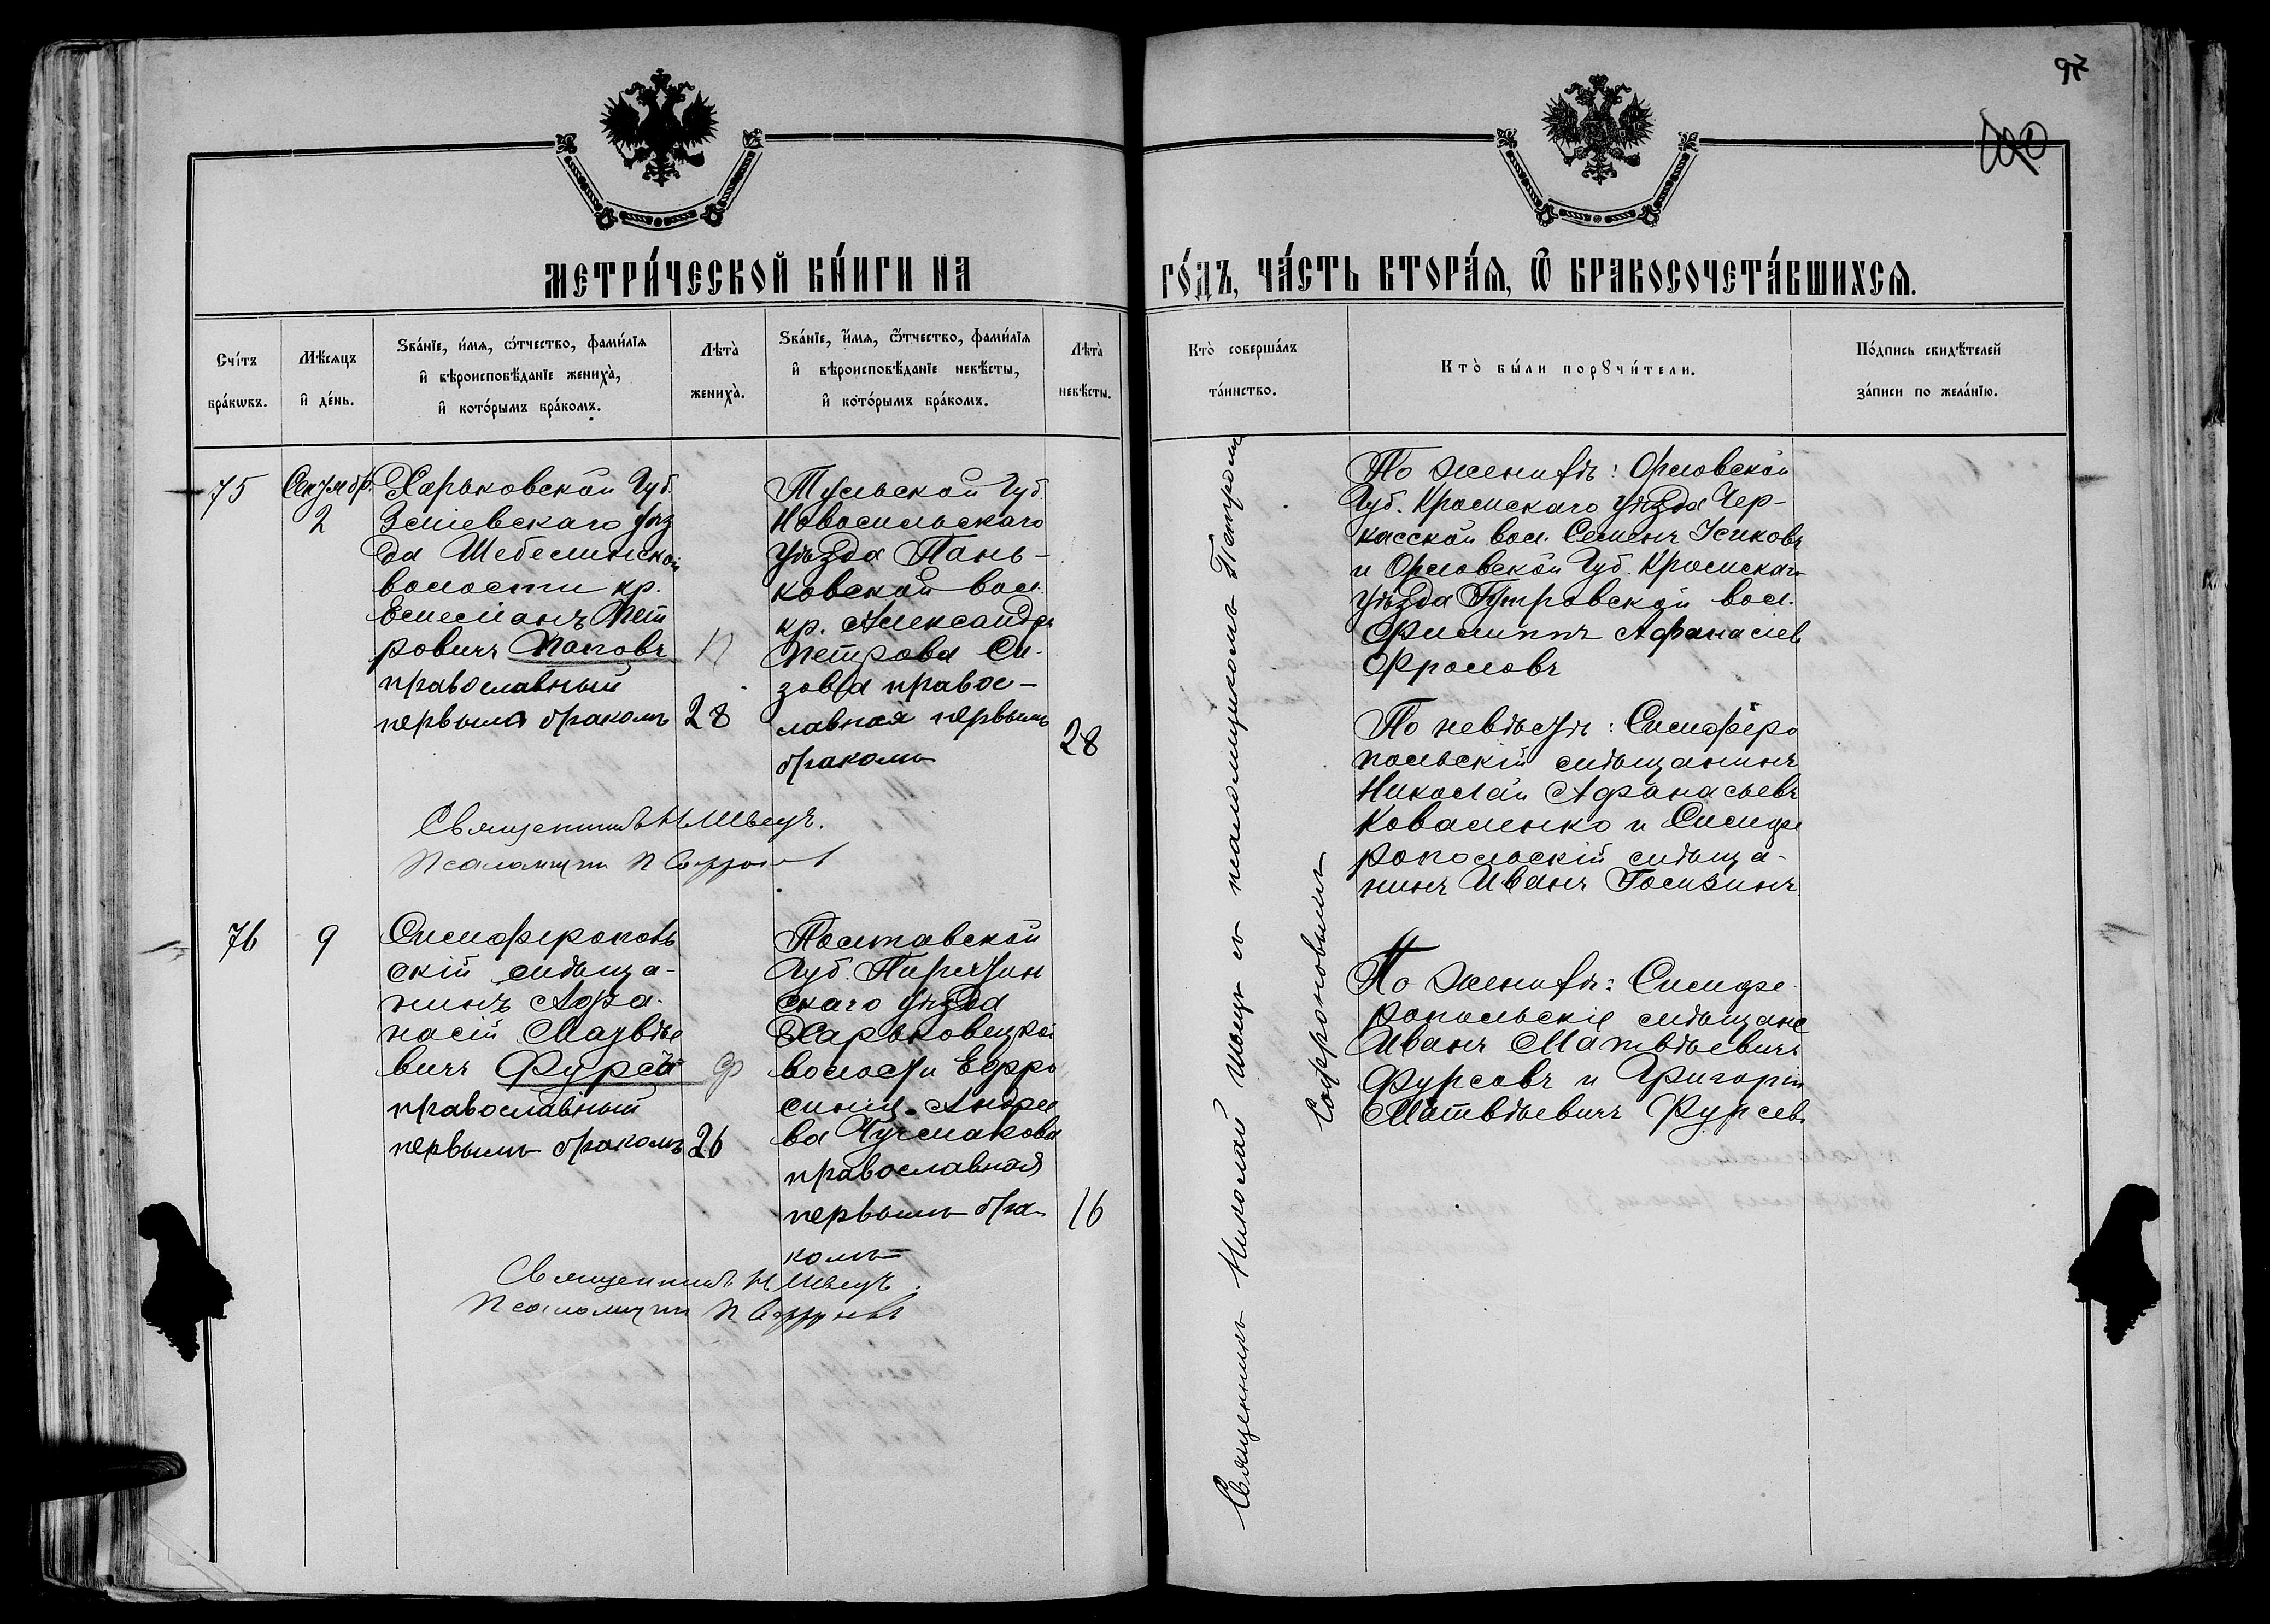 97
МЕТРИ́ЧЕСКОЙ КНИ́ГИ НА
ГО́ДЪ, ЧА́СТЬ ВТОРА́Я, Ѿ БРАКОСОЧЕТА́ВШИХСЯ.
Счі́тъ бра́кѡвъ.
Мѣ́сяцъ и҆ де́нь.
Ѕва́нїе, и́мя, ѻ҆́тчество, фами́лїя
и҆ вѣроисповѣ́данїе жениха̀,
и҆ кото́рымъ бра́комъ.
Лѣта̀ жениха̀.
Ѕва́нїе, и҆́мя, ѻ҆́тчество, фами́лїя
и҆ вѣроисповѣ́данїе невѣ́сты,
и҆ кото́рымъ бра́комъ.
Лѣта̀ невѣ́сты.
Кто̀ соверша́лъ та́инство.
Кто̀ бы́ли порꙋчи́тели.
По́дпись свидѣ́телей
за́писи по жела́нїю.
75
Сентябр.
2
Харьковской Губ.
Зміевскаго уѣз
да Шебелинской
волости кр.
Емеліанъ Пет
ровичъ Поповъ
православный
первымъ бракомъ
П
28
Тульской Губ.
Новосильскаго
уѣзда Пань-
ковской вол.
кр. Александра
Петрова Си-
зова правос-
лавная первымъ
бракомъ
28
Священникъ Н Швецъ.
Псаломщикъ П Софроновъ
Священникъ Николай Швецъ съ псаломщикомъ Петромъ
Софроновымъ
По женихѣ: Орловской
Губ. Кромскаго уѣзда Чер-
касской вол. Семенъ Усиковъ
и Орловской Губ. Кромскаго
уѣзда Гутровской вол.
Филиппъ Афанасіев
Фроловъ
По невѣстѣ: Симферо
польскій мѣщанинъ
Николай Афанасьевъ
Коваленко и Симфе
ропольскій мѣща-
нинъ Иванъ
76
9
Симферополь
скій мѣща-
нинъ Афа-
насій Матвѣе
вичъ Фурсовъ
православный
первымъ бракомъ
Ф
26
Полтавской
Губ. Пирятин
скаго уѣзда
Харьковецкой
волости Евфро
синія Андрее
ва Чучмакова
православная
первымъ бра
комъ
16
Священникъ Н Швецъ.
Псаломщикъ П Софроновъ
По женихѣ: Симфе-
ропольскіе мѣщане
Иванъ Матвѣевичъ
Фурсовъ и Григорій
Матвѣевичъ Фурсовъ